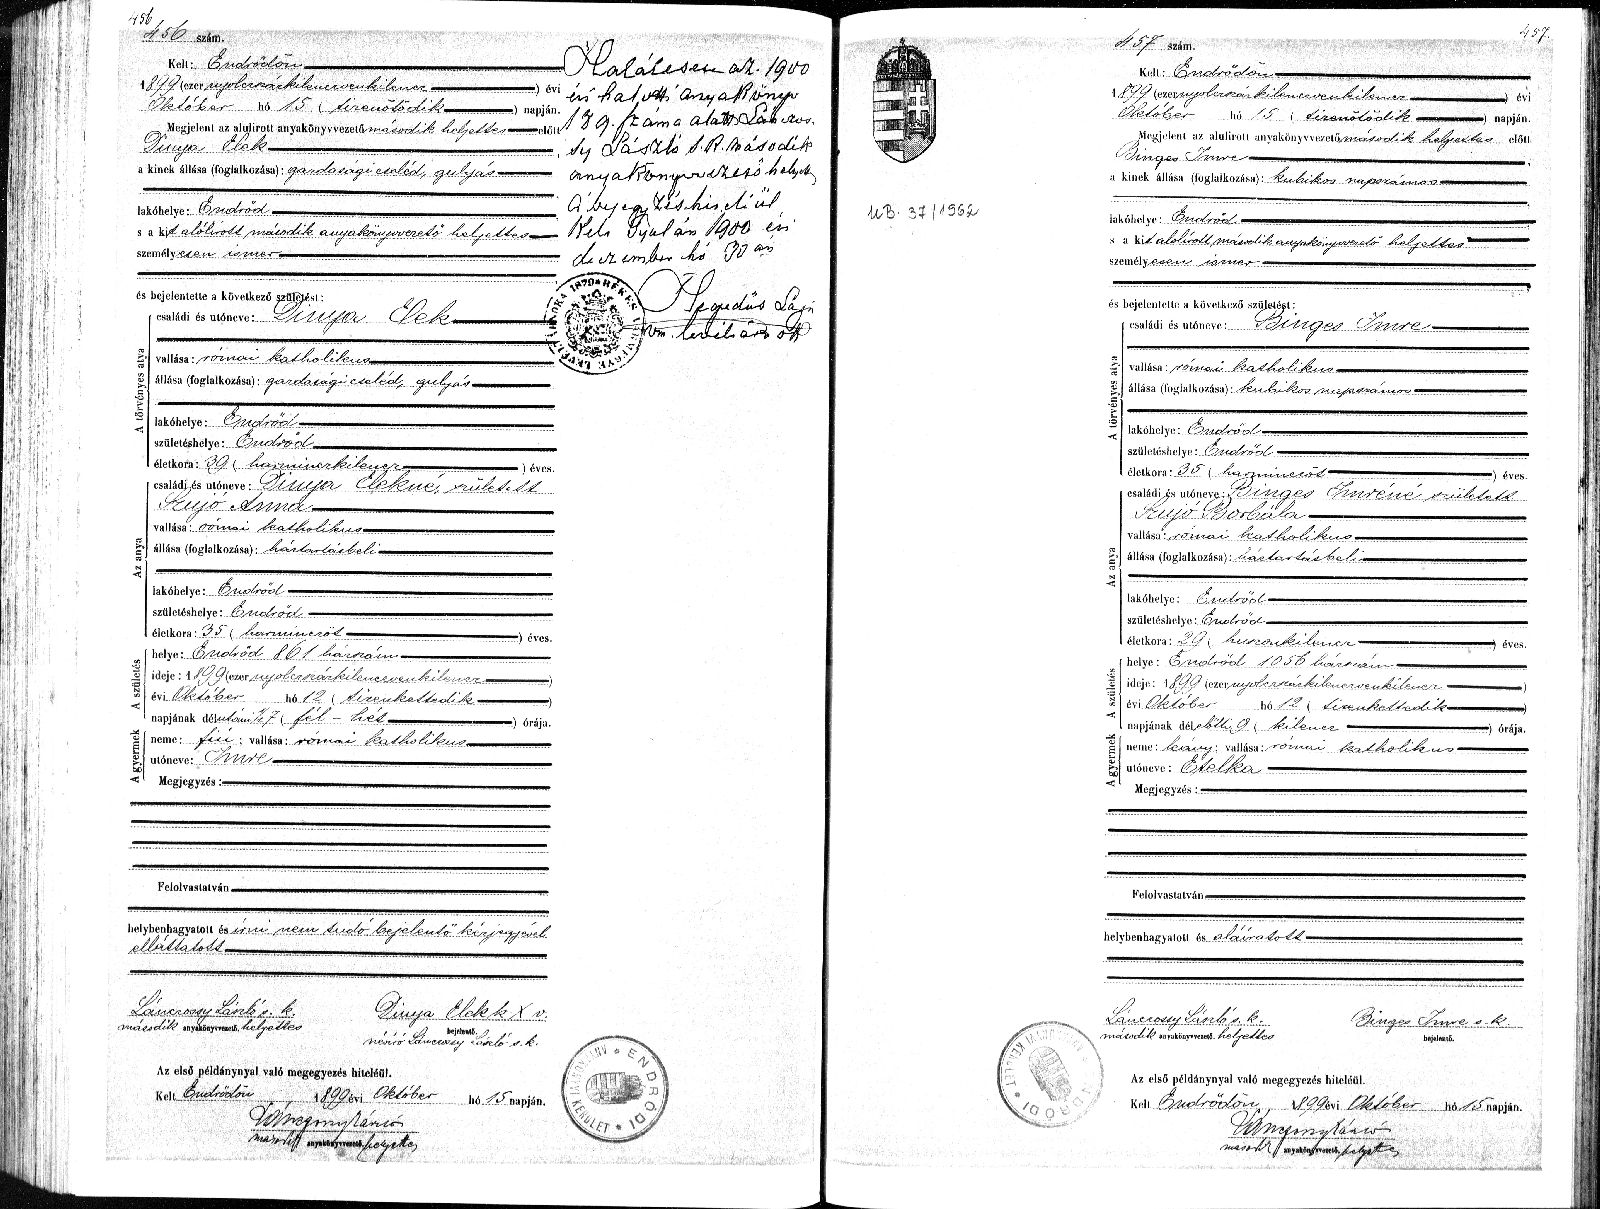 456
456 szám.
Kelt: Endrődön
1899 (ezer nyolczszázkilenczvenkilencz ) évi
Október hó 15 ( tizenötödik ) napján.
Megjelent az alulirott anyakönyvvezető második helyettes előtt
Dinya Elek
a kinek állása (foglalkozása): gazdasági cseléd, gulyás
lakóhelye: Endrőd
s a kit alólírott második anyakönyvvezető helyettes
személyesen ismer
és bejelentette a következő születést:
A törvényes atya
családi és utóneve: Dinya Elek
vallása: római katholikus
állása (foglalkozása): gazdasági cseléd, gulyás
lakóhelye: Endrőd
születéshelye: Endrőd
életkora: 39 ( harminczkilencz ) éves.
Az anya
családi és utóneve: Dinya Elekné, született
Szujó Anna
vallása: római katholikus
állása (foglalkozása): háztartásbeli
lakóhelye: Endrőd
születéshelye: Endrőd
életkora: 35 ( harminczöt ) éves.
A születés
helye: Endrőd 861 házszám
ideje: 1899 (ezer nyolczszázkilenczvenkilencz )
évi Október hó 12 ( tizenkettedik )
napjának délutáni ½7 ( fél-hét ) órája.
A gyermek
neme: fiú; vallása: római katholikus
utóneve: Imre
Megjegyzés:
Felolvastatván
helybenhagyatott és írni nem tudó bejelentő kézjegyével
elláttatott
Lánczossy László s. k. Dinya Elek k X v.
második anyakönyvvezető. helyettes bejelentő.
névíró Lánczossy László s. k.
Az első példánynyal való megegyezés hiteléül.
Kelt Endrődön 1899 évi Október hó 15 napján.
második anyakönyvvezető. helyettes
ENDRŐDI * ANYAKÖNYVI KERÜLET *
Halálesete az 1900
évi halotti anyakönyv
189. száma alatt Lánczos-
sy László s. k. második
anyakönyvvezető helyett.
A bejegyzés hiteléül
Kelt Gyulán 1900 évi
deczember hó 30 án
Hegedűs
vm. levéltárnok
BÉKÉS VÁRMEGYE LEVÉLTÁRNOKA 1870
457.
457 szám.
Kelt: Endrődön
1899 (ezer nyolczszázkilenczvenkilencz ) évi
Október hó 15 ( tizenötödik ) napján.
Megjelent az alulirott anyakönyvvezető második helyettes előtt
Binges Imre
a kinek állása (foglalkozása): kubikos napszámos
lakóhelye: Endrőd
s a kit alólírott második anyakönyvvezető helyettes
személyesen ismer
és bejelentette a következő születést:
A törvényes atya
családi és utóneve: Binges Imre
vallása: római katholikus
állása (foglalkozása): kubikos napszámos
lakóhelye: Endrőd
születéshelye: Endrőd
életkora: 35 ( harminczöt ) éves.
Az anya
családi és utóneve: Binges Imréné született
Szujó Borbála
vallása: római katholikus
állása (foglalkozása): háztartásbeli
lakóhelye: Endrőd
születéshelye: Endrőd
életkora: 29 ( huszonkilencz ) éves.
A születés
helye: Endrőd 1056 házszám
ideje: 1899 (ezer nyolczszázkilenczvenkilencz )
évi Október hó 12 ( tizenkettedik )
napjának délelőtti 9 ( kilencz ) órája.
A gyermek
neme: leány; vallása: római katholikus
utóneve: Etelka
Megjegyzés:
Felolvastatván
helybenhagyatott és aláiratott
Lánczossy László s. k. Binges Imre s. k.
második anyakönyvvezető. helyettes bejelentő.
Az első példánynyal való megegyezés hiteléül.
Kelt Endrődön, 1899 évi Október hó 15 napján.
második anyakönyvvezető. helyettes
ENDRŐDI * ANYAKÖNYVI KERÜLET *
UB. 37/1962